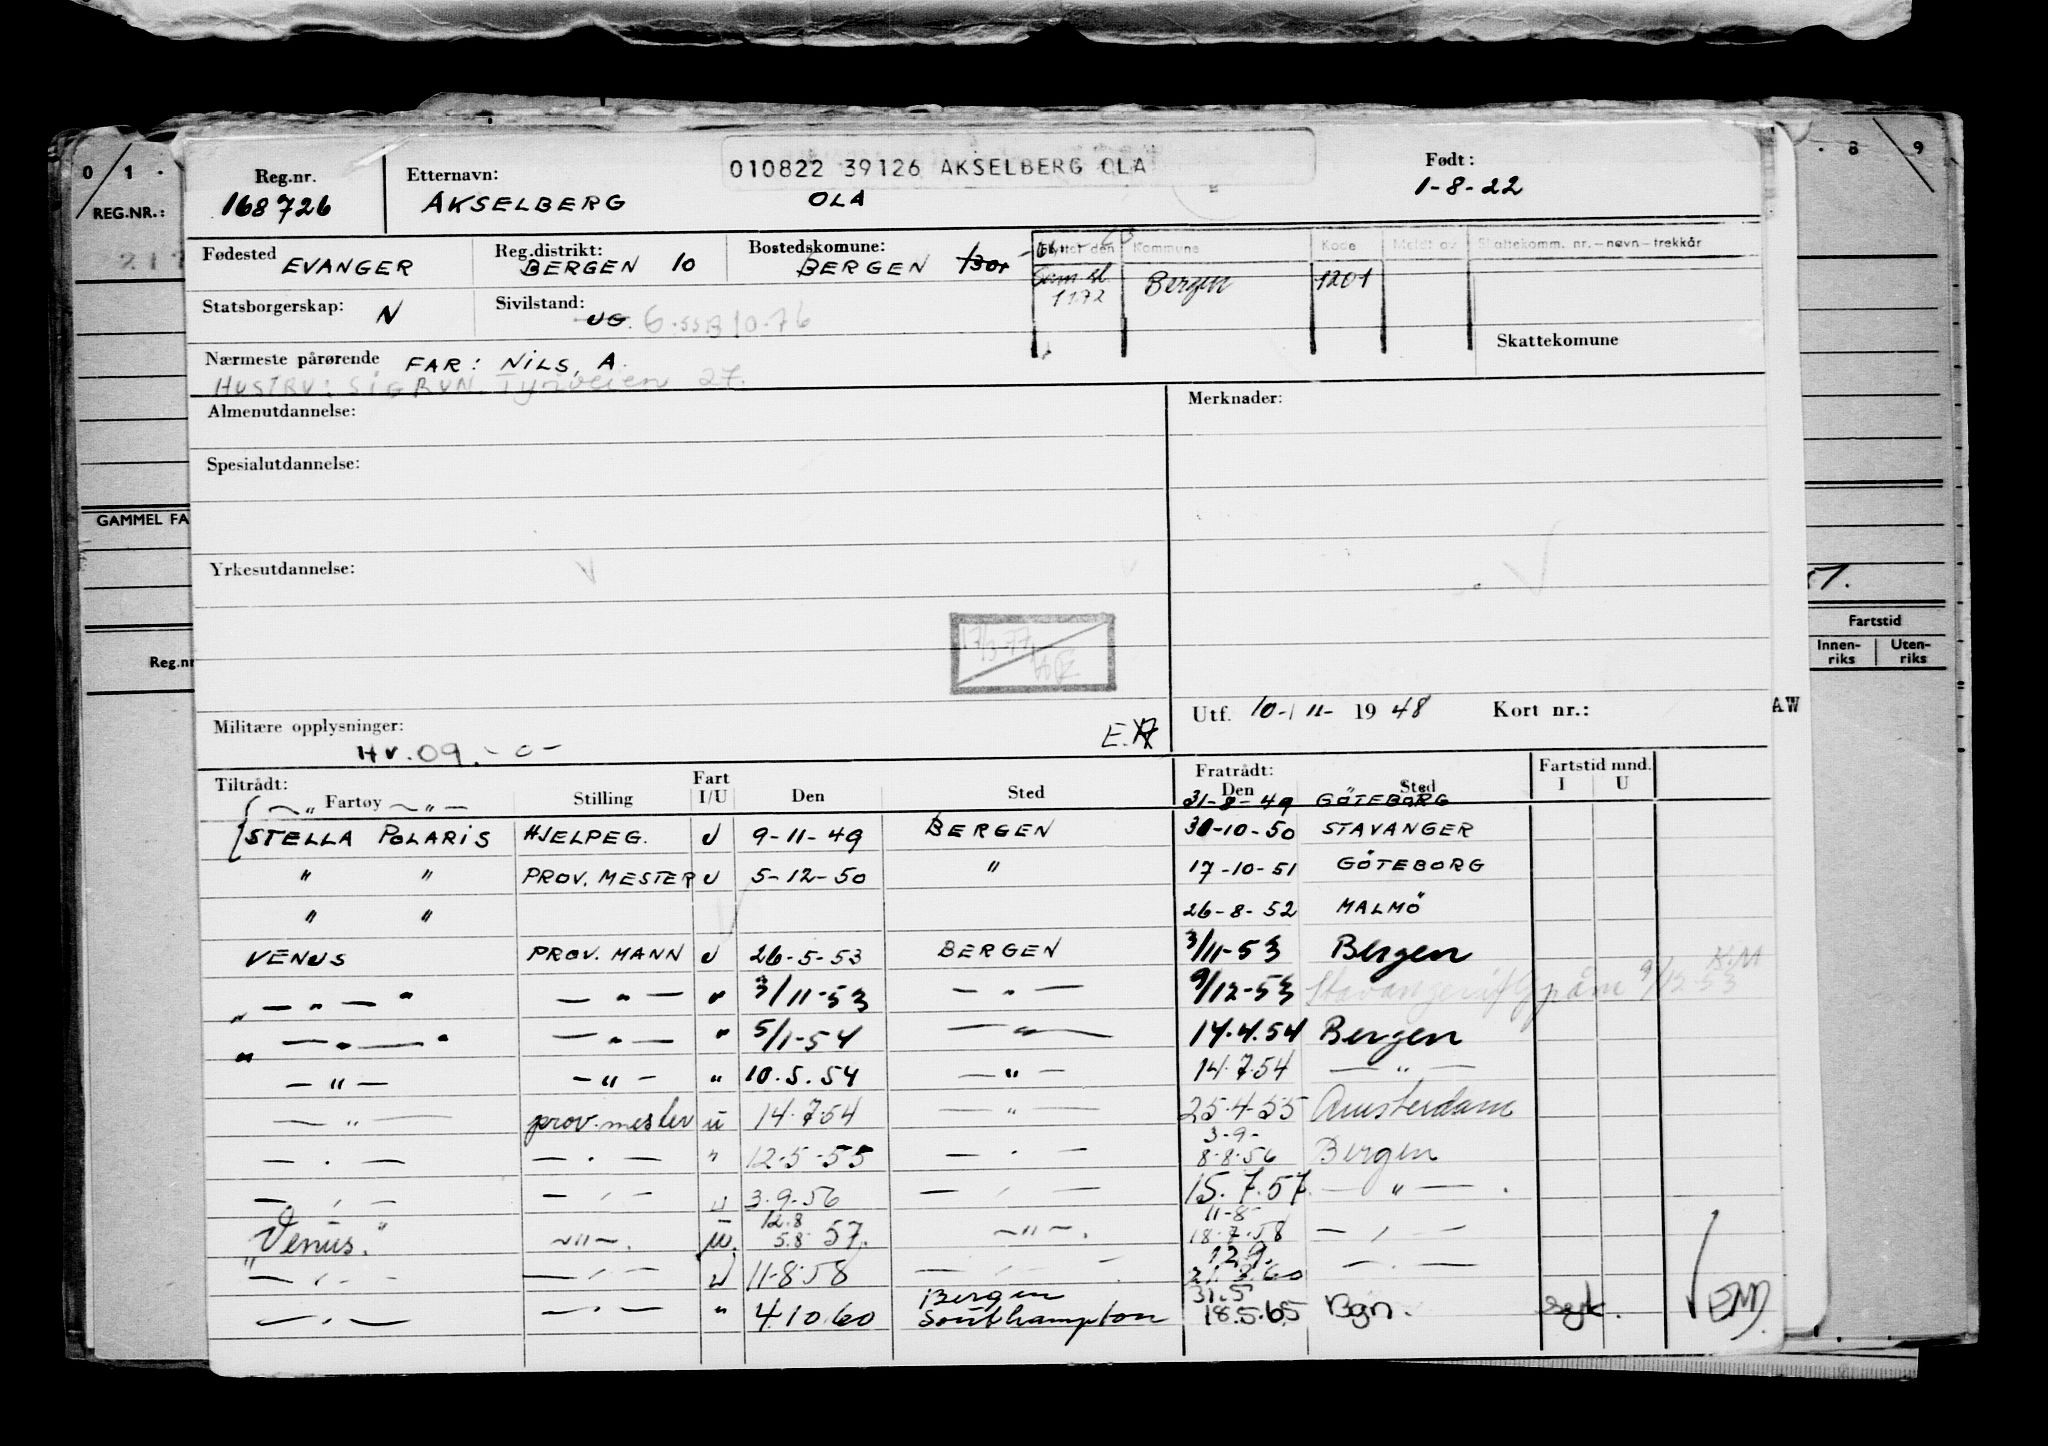 010822 39126 AKSELBERG OLA
Reg.nr. Etternavn: Født:
168726 AKSELBERG OLA 1-8-22
0 1 . . 8 9
REG.NR.:
Fødested EVANGER Reg.distrikt: BERGEN 10 Bostedskomune: BERGEN 1301
Flyttet den Kommune Kode Meldt av Skattekomm. nr.-navn-trekkår
Sam.sl. 1172 Bergen 1201
Statsborgerskap: N Sivilstand: UG. G.
Skattekomune
Nærmeste pårørende FAR: NILS, A.
HUSTRU: SIGRUN. Tyriveien 27.
Almenutdannelse: Merknader:
Spesialutdannelse:
GAMMEL FA
Yrkesutdannelse:
Fartstid
Innen-riks Uten-riks
Reg.nr
Utf. 10-11-1948 Kort nr.: AW
Militære opplysninger: HV.09.-0-
Tiltrådt: Fart Fratrådt: Fartstid mnd.
Fartøy Stilling I/U Den Sted Den Sted I U
— " — " — 31-8-49 GÖTEBORG
STELLA POLARIS HJELPEG. U 9-11-49 BERGEN 30-10-50 STAVANGER
" " PROV. MESTER U 5-12-50 " 17-10-51 GÖTEBORG
" " 26-8-52 MALMÖ
VENUS PROV. MANN U 26-5-53 BERGEN 3/11-53 Bergen
" — " — " — " — " 3/11-53 — " — 9/12-53 Stavanger 9/12 53
" — " — " — " — " 5/1-54 — " — 14.4.54 Bergen
— " — — " — " 10.5.54 — " — 14.7.54 — " —
— " — prov.mester u 14.7.54 — " — 25.4.55 Amsterdam
— " — — " — " 12-5-55 — " — 3-9- 8-8-56 Bergen
— " — — " — u 3.9.56 — " — 15.7.57. — " — .
"Venus." — " — . u. 12.8 5.8 57. — " — . 11-8- 18.7.58 — " —
— " — — " — u 11-8-58 — " — 12.9. 60 — " —
— " — — " — " 4.10.60 Bergen Southampton 31.5 18.5.65 Bgn. syk.